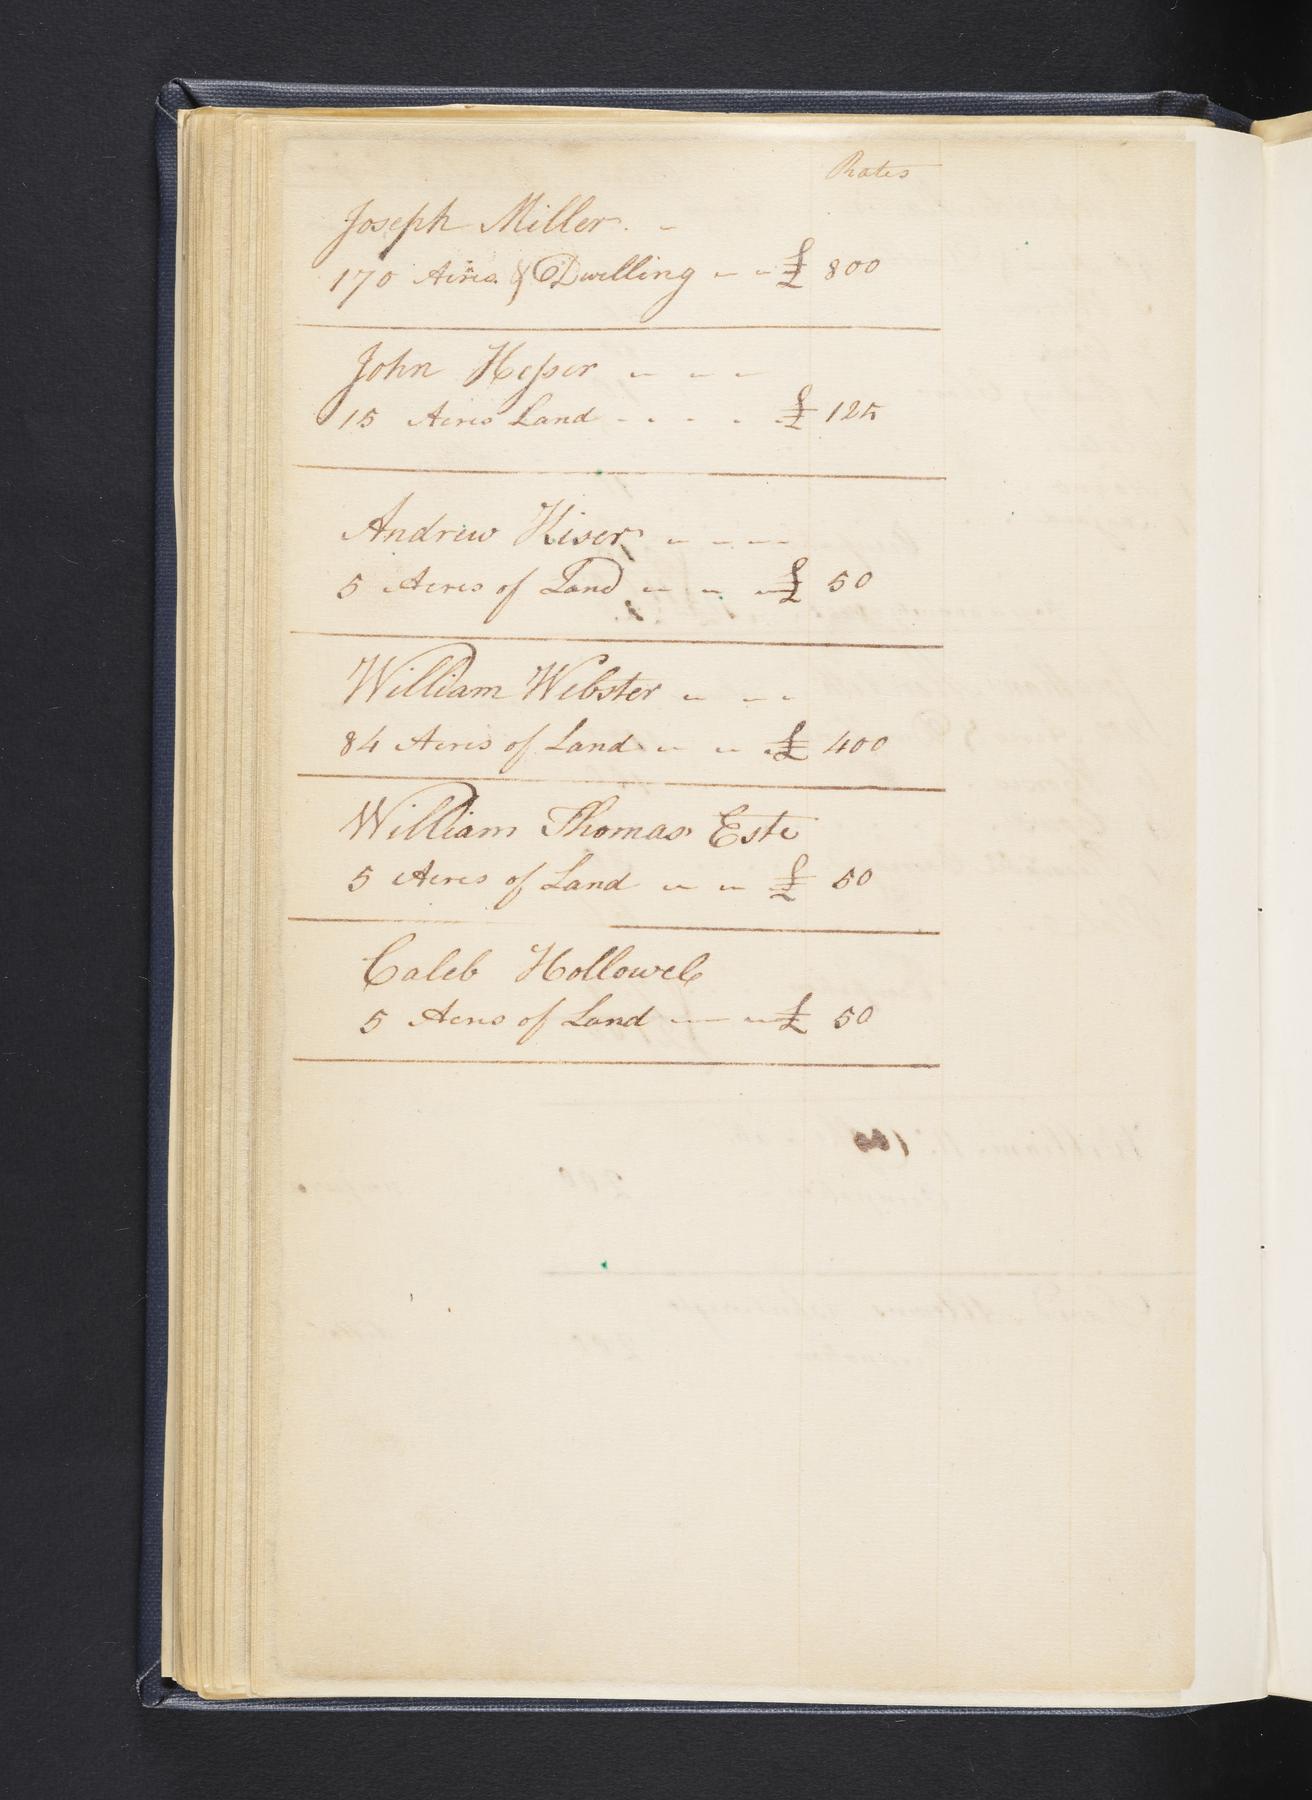 Rates
Joseph Miller. -
170 Acres & Dwelling - - £ 800
John Hesser - - -
15 Acres Land - - - - - £ 125
Andrew Kiser - - - -
5 Acres of Land - - - £ 50
William Webster - - -
84 Acres of Land - - - £ 400
William Thomas Este
5 Acres of Land - - £ 50
Caleb Hollowel
5 Acres of Land - - £ 50